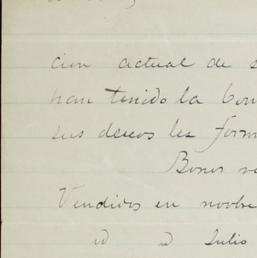 cion actual de
han tenido la
sus deseos les
Bonos
Vendidos en novbre
id id Julio